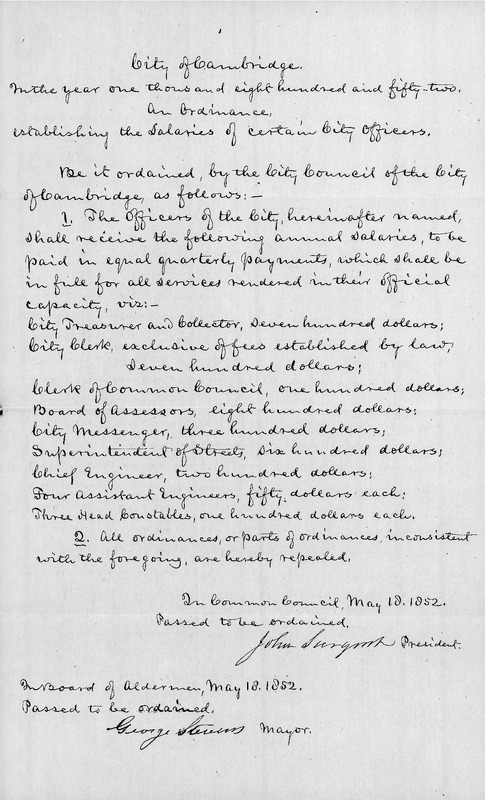 City of Cambridge.
In the year one thousand eight hundred and fifty-two.
An Ordinance,
establishing the Salaries of certain City Officers.
Be it ordained, by the City Council of the City
of Cambridge, as follows:-
1. The Officers of the City, hereinafter named,
shall receive the following annual salaries, to be
paid in equal quarterly payments, which shall be
in full for all services rendered in their official
capacity, viz:-
City Treasurer and Collector, Seven hundred dollars;
City Clerk, exclusive of fees established by law,
Seven hundred dollars;
Clerk of Common Council, one hundred dollars;
Board of Assessors, eight hundred dollars;
City Messenger, three hundred dollars;
Superintendent of Streets, six hundred dollars;
Chief Engineer, two hundred dollars;
Four Assistant Engineers, fifty dollars each;
Three Head Constables, one hundred dollars each.
2. All ordinances, or parts of ordinances, inconsistent
with the foregoing, are hereby repealed.
In Common Council, May 18. 1852.
Passed to be ordained,
John Sargent President.
In Board of Aldermen, May 18. 1852.
Passed to be ordained.
George Stevens Mayor.